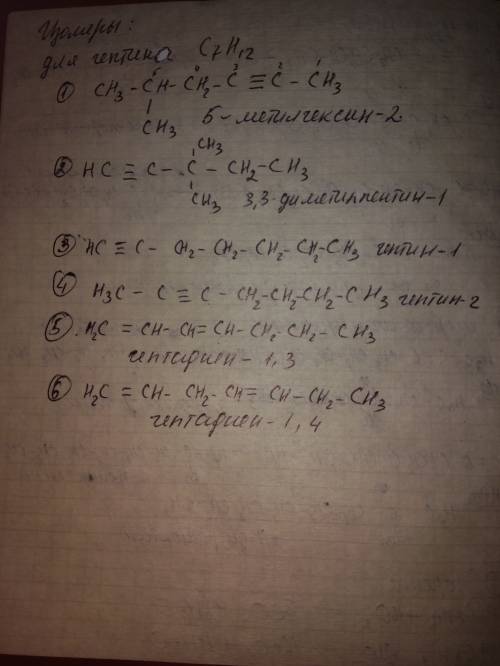 Изомеры:
для гептина C7H12
① CH3 - CH - CH2 - C ≡ C - CH3
5 4 3 2 1
CH3
5-метилгексин-2
CH3
② HC ≡ C - C - CH2 - CH3
CH3
3,3-диметилпентин-1
③ HC ≡ C - CH2 - CH2 - CH2 - CH2 - CH3 гептин-1
④ H3C - C ≡ C - CH2 - CH2 - CH2 - CH3 гептин-2
⑤ H2C = CH - CH = CH - CH2 - CH2 - CH3
гептадиен-1,3
⑥ H2C = CH - CH2 - CH = CH - CH2 - CH3
гептадиен-1,4